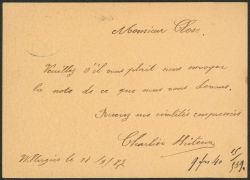 Monsieur Clous.
Veuillez s'il vous plait nous envoyer
la note de ce que nous vous devons.
Recevez nos civilités empressées
Charlier
le 11/4/87.